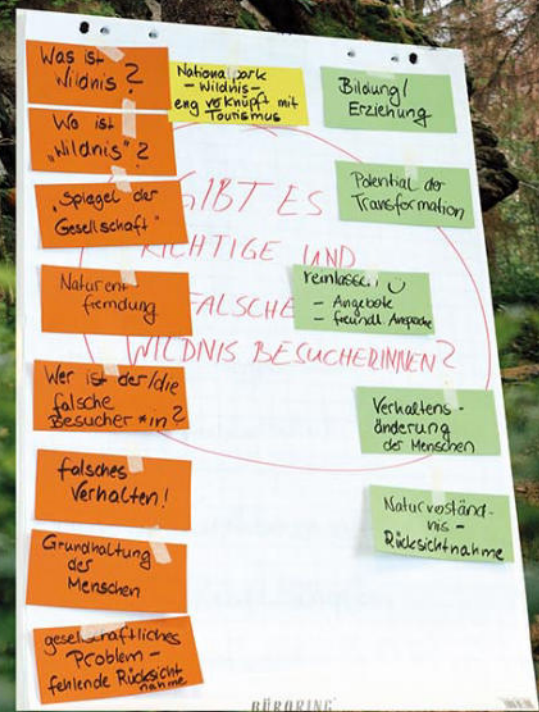 Was ist
Wildnis?
Wo ist
"Wildnis"?
"Spiegel der
Gesellschaft"
Naturent
fremdung
Wer ist der/die
falsche
Besucher*in?
falsches
Verhalten!
Grundhaltung
des
Menschen
gesellschaftliches
Problem –
fehlende Rücksicht
nahme
Nationalpark
– Wildnis –
eng verknüpft mit
Tourismus
GIBT ES
RICHTIGE UND
FALSCHE
WILDNIS BESUCHERINNEN?
Bildung/
Erziehung
Potential der
Transformation
reinlassen
– Angebote
– freundl. Ansprache
Verhaltens-
änderung
des Menschen
Naturverständ-
nis –
Rücksichtnahme
BÜRORING